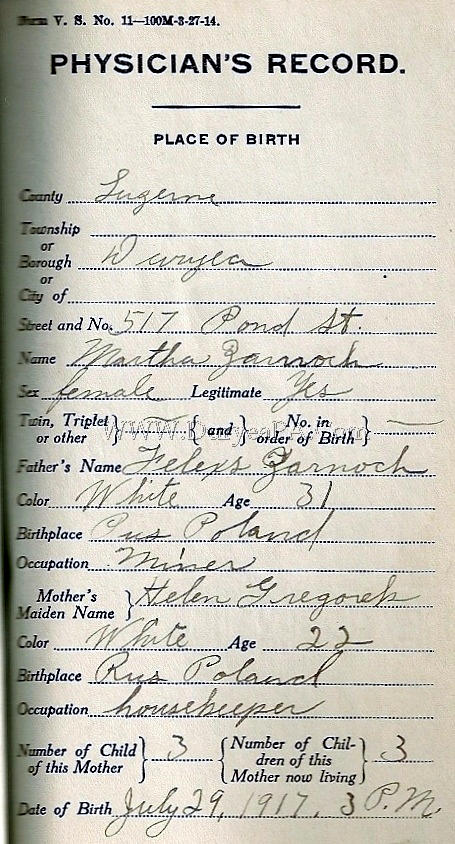 Form V. S. No. 11—100M-3-27-14.
PHYSICIAN'S RECORD.
PLACE OF BIRTH
County Luzerne
Township
or
Borough Duryea
or
City of
Street and No. 517 Pond St.
Name Martha Zarnoch
Sex female Legitimate Yes
Twin, Triplet or other } — { and } No. in order of Birth } —
www.DuryeaPA.com
Father's Name Felexs Zarnoch
Color White Age 31
Birthplace Rus Poland
Occupation Miner
Mother's Maiden Name } Helen Gregorek
Color White Age 22
Birthplace Rus Poland
Occupation housekeeper
Number of Child of this Mother } 3 { Number of Chil-
dren of this
Mother now living } 3
Date of Birth July 29, 1917, 3 P.M.